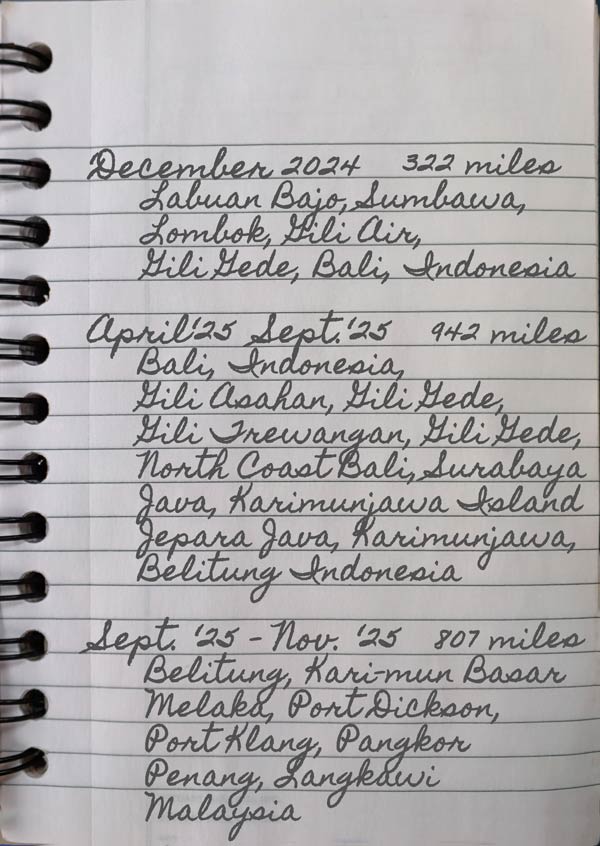 December 2024 322 miles
Labuan Bajo, Sumbawa,
Lombok, Gili Air,
Gili Gede, Bali, Indonesia
April '25 Sept. '25 942 miles
Bali, Indonesia,
Gili Asahan, Gili Gede,
Gili Trewangan, Gili Gede,
North Coast Bali, Surabaya
Java, Karimunjawa Island
Jepara Java, Karimunjawa,
Belitung Indonesia
Sept. '25 - Nov. '25 807 miles
Belitung, Kari-mun Basar
Melaka, Port Dickson,
Port Klang, Pangkor
Penang, Langkawi
Malaysia